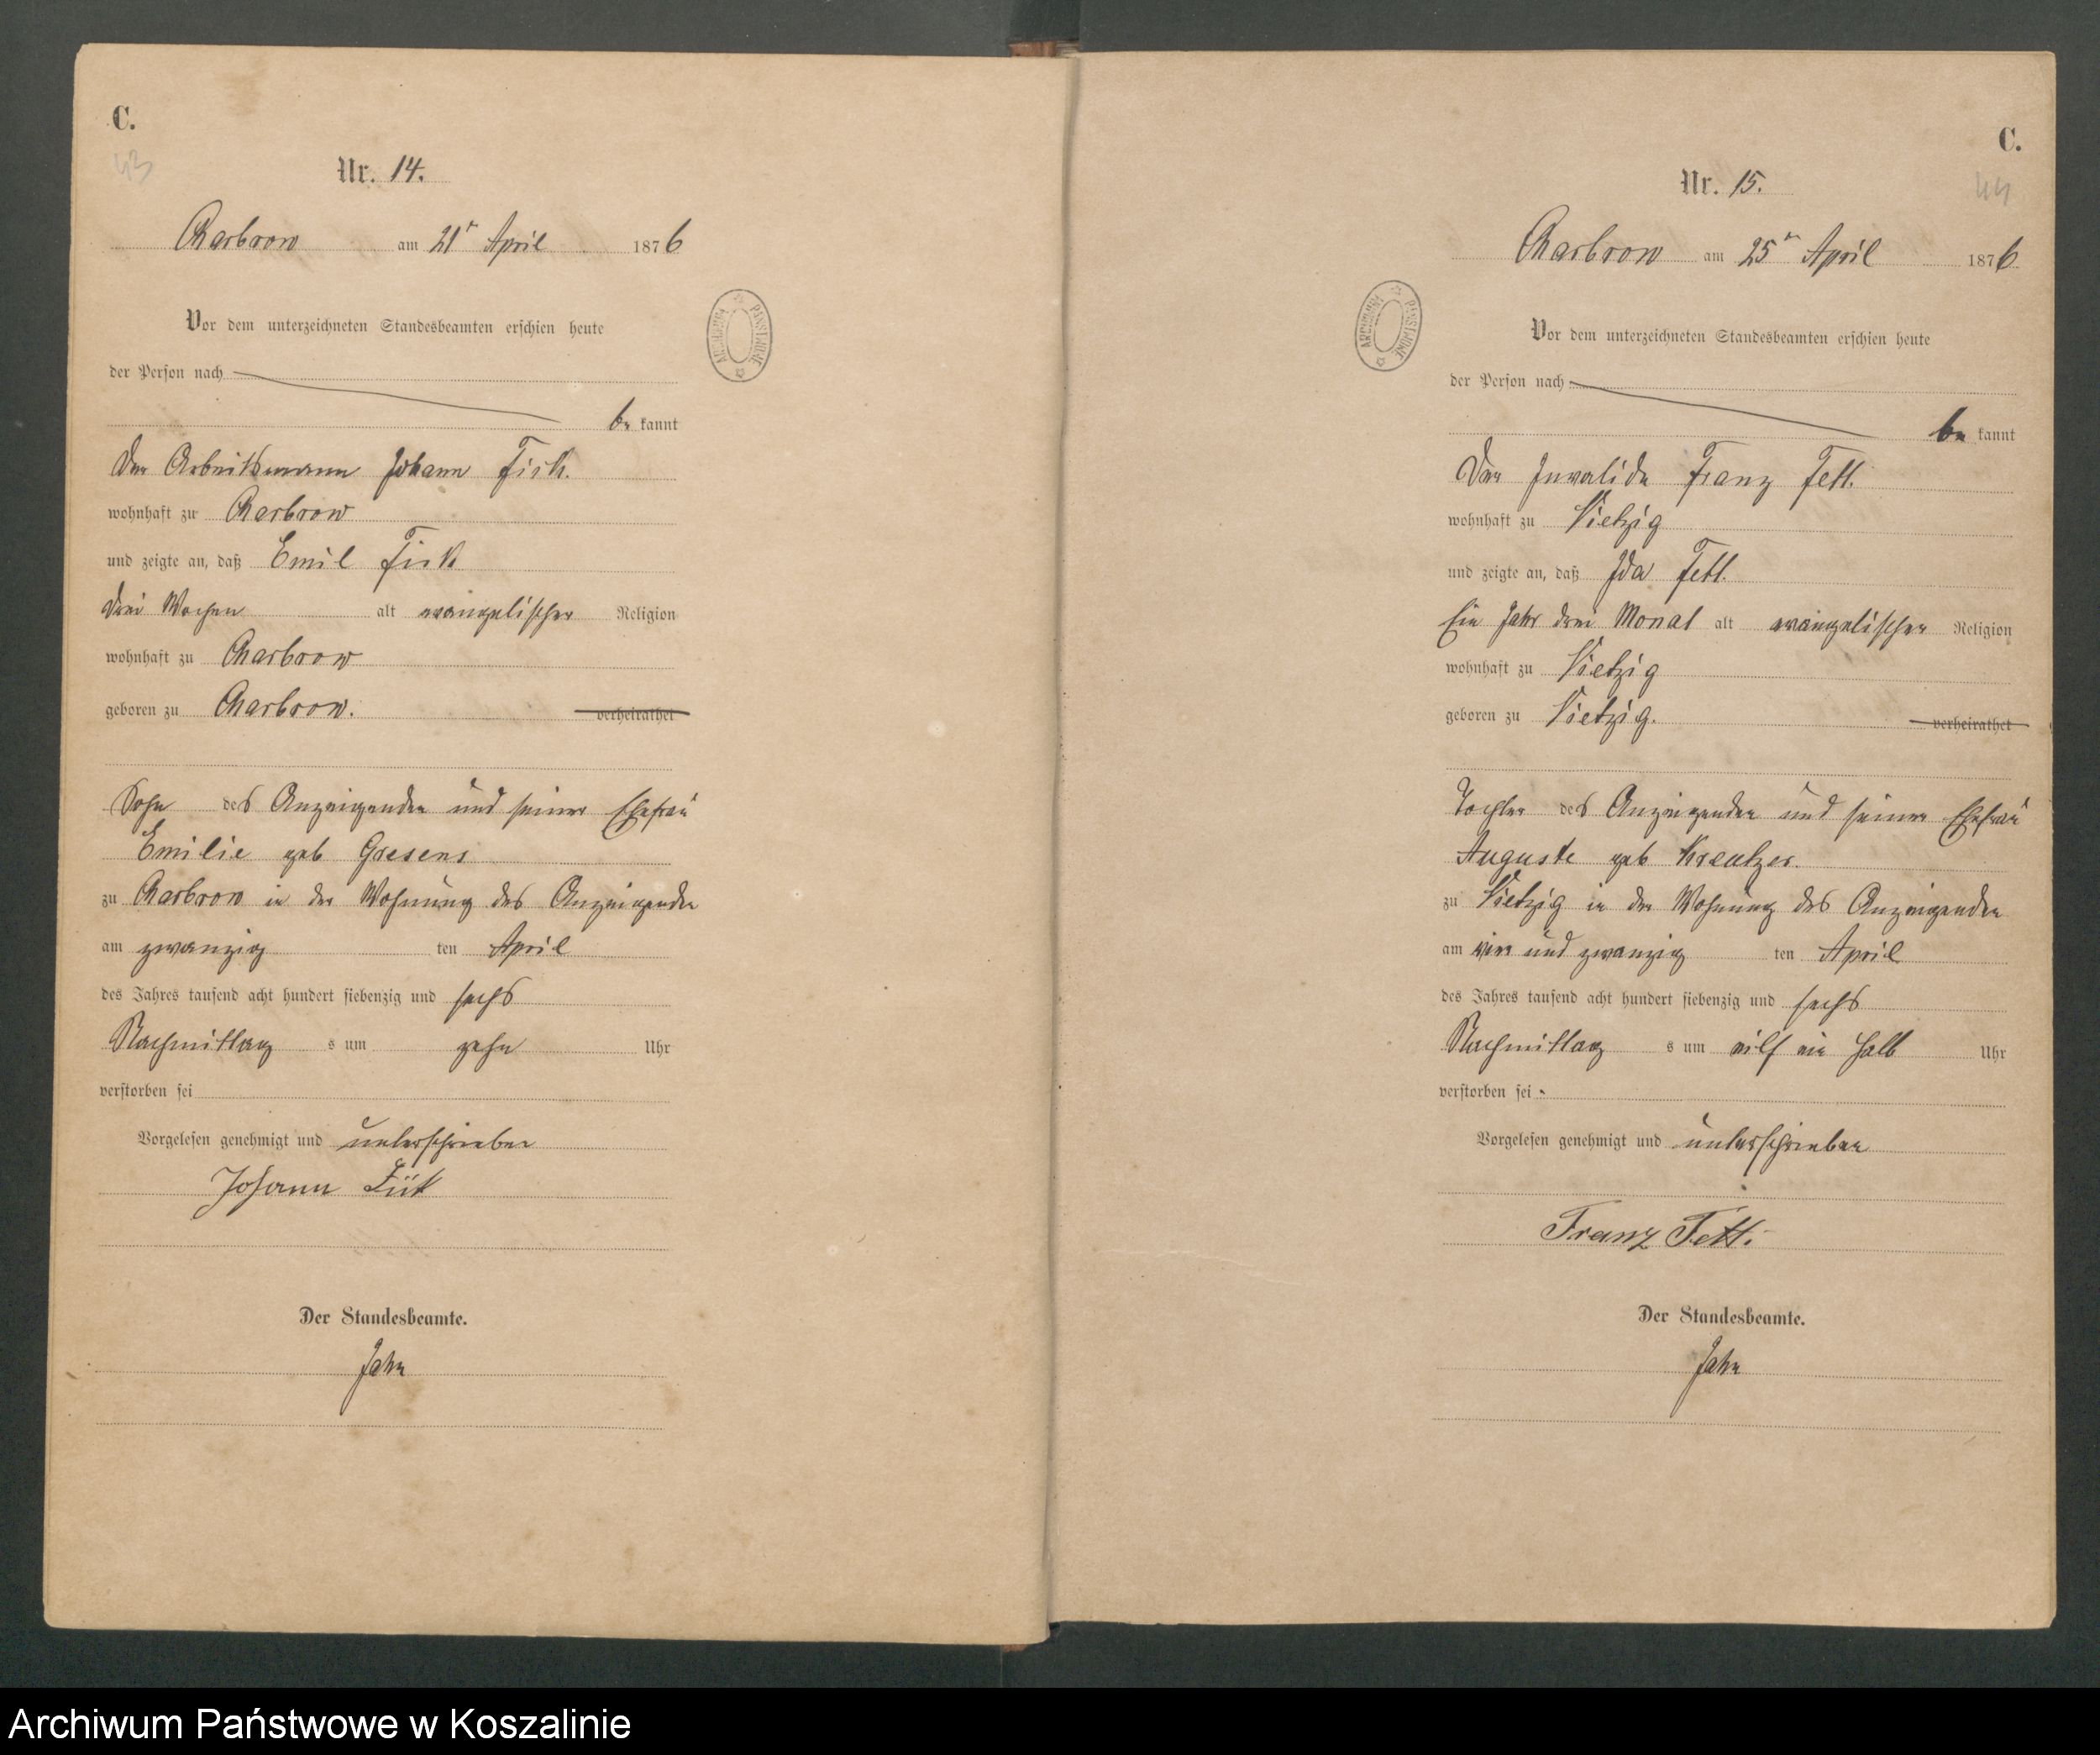 C.
43
Nr. 14.
Charbrow am 21n April 1876
Vor dem unterzeichneten Standesbeamten erschien heute
der Person nach
be kannt
der Arbeitsmann Johann Fick.
wohnhaft zu Charbrow
und zeigte an, daß Emil Fick
drei Wochen alt evangelischer Religion
wohnhaft zu Charbrow
geboren zu Charbrow. verheirathet
Sohn des Anzeigenden und seiner Ehefrau
Emilie geb Gresens
zu Charbrow in der Wohnung des Anzeigenden
am zwanzig ten April
des Jahres tausend acht hundert siebenzig und sechs
Nachmittag s um zehn Uhr
verstorben sei
Vorgelesen genehmigt und unterschrieben
Johann
Der Standesbeamte.
Jahn
C.
44
Nr. 15.
Charbrow am 25n April 1876
Vor dem unterzeichneten Standesbeamten erschien heute
der Person nach
be kannt
Der Invalide Franz Fett.
wohnhaft zu Vietzig
und zeigte an, daß Ida Fett.
Ein Jahr drei Monat alt evangelischer Religion
wohnhaft zu Vietzig
geboren zu Vietzig. verheirathet
Tochter des Anzeigenden und seiner Ehefrau
Auguste geb Kreutzer.
zu Vietzig in der Wohnung des Anzeigenden
am vier und zwanzig ten April
des Jahres tausend acht hundert siebenzig und sechs
Nachmittag s um eilf ein halb Uhr
verstorben sei
Vorgelesen genehmigt und unterschrieben
Franz Fett.
Der Standesbeamte.
Jahn
ARCHIWUM PAŃSTWOWE
ARCHIWUM PAŃSTWOWE
Archiwum Państwowe w Koszalinie